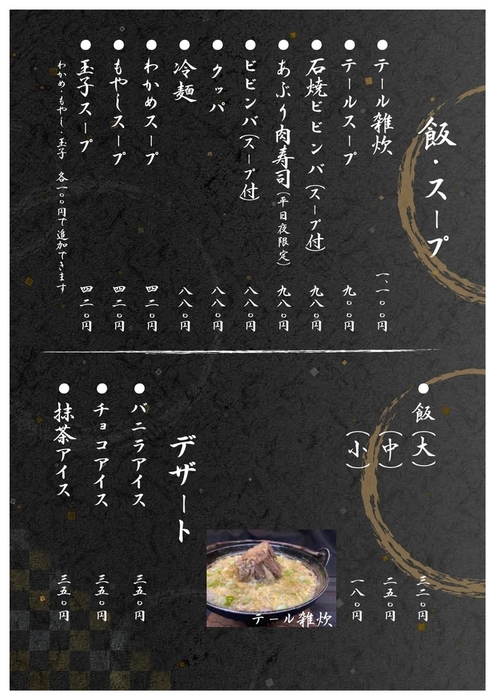 飯・スープ
●テール雑炊 一、一〇〇円
●テールスープ 九〇〇円
●石焼ビビンバ(スープ付) 九八〇円
●あぶり肉寿司(平日夜限定) 九八〇円
●ビビンバ(スープ付) 八八〇円
●クッパ 八八〇円
●冷麺 八八〇円
●わかめスープ 四二〇円
●もやしスープ 四二〇円
●玉子スープ 四二〇円
わかめ・もやし・玉子 各一〇〇円で追加できます
●飯(大) 三二〇円
(中) 二五〇円
(小) 一八〇円
テール雑炊
デザート
●バニラアイス 三五〇円
●チョコアイス 三五〇円
●抹茶アイス 三五〇円